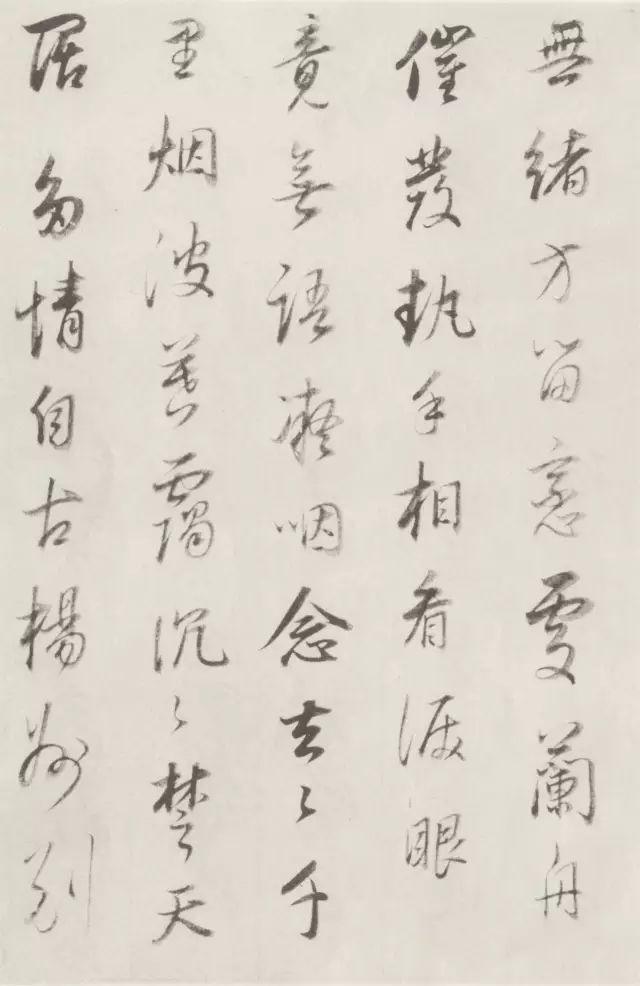 無緒方留戀處蘭舟
催發執手相看淚眼
竟無語凝咽念去〻千
里烟波暮靄沉〻楚天
多情自古別